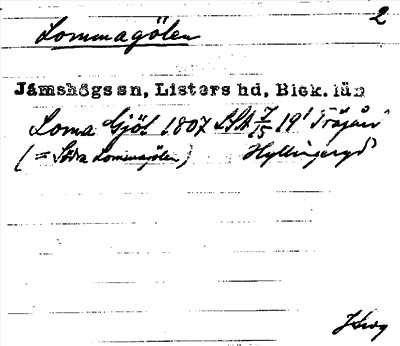 2
Lommagölen
Jämshögs sn, Listers hd, Blek. län
Loma Giöl 1807 LSA 7/15 19¹ Tråjån
(= Söra Lommagölen) Hyllingeryd